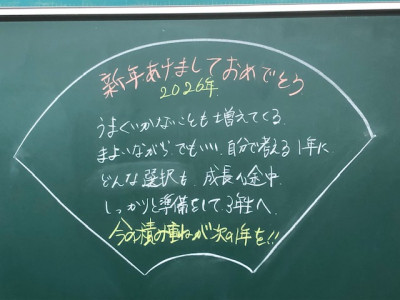 新年あけましておめでとう
2026年
うまくいかないことも増えてくる
まよいながらでもいい、自分で考える1年に
どんな選択も、成長へ途中
しっかりと準備をして3年生へ
今の積み重ねが次の1年を!!